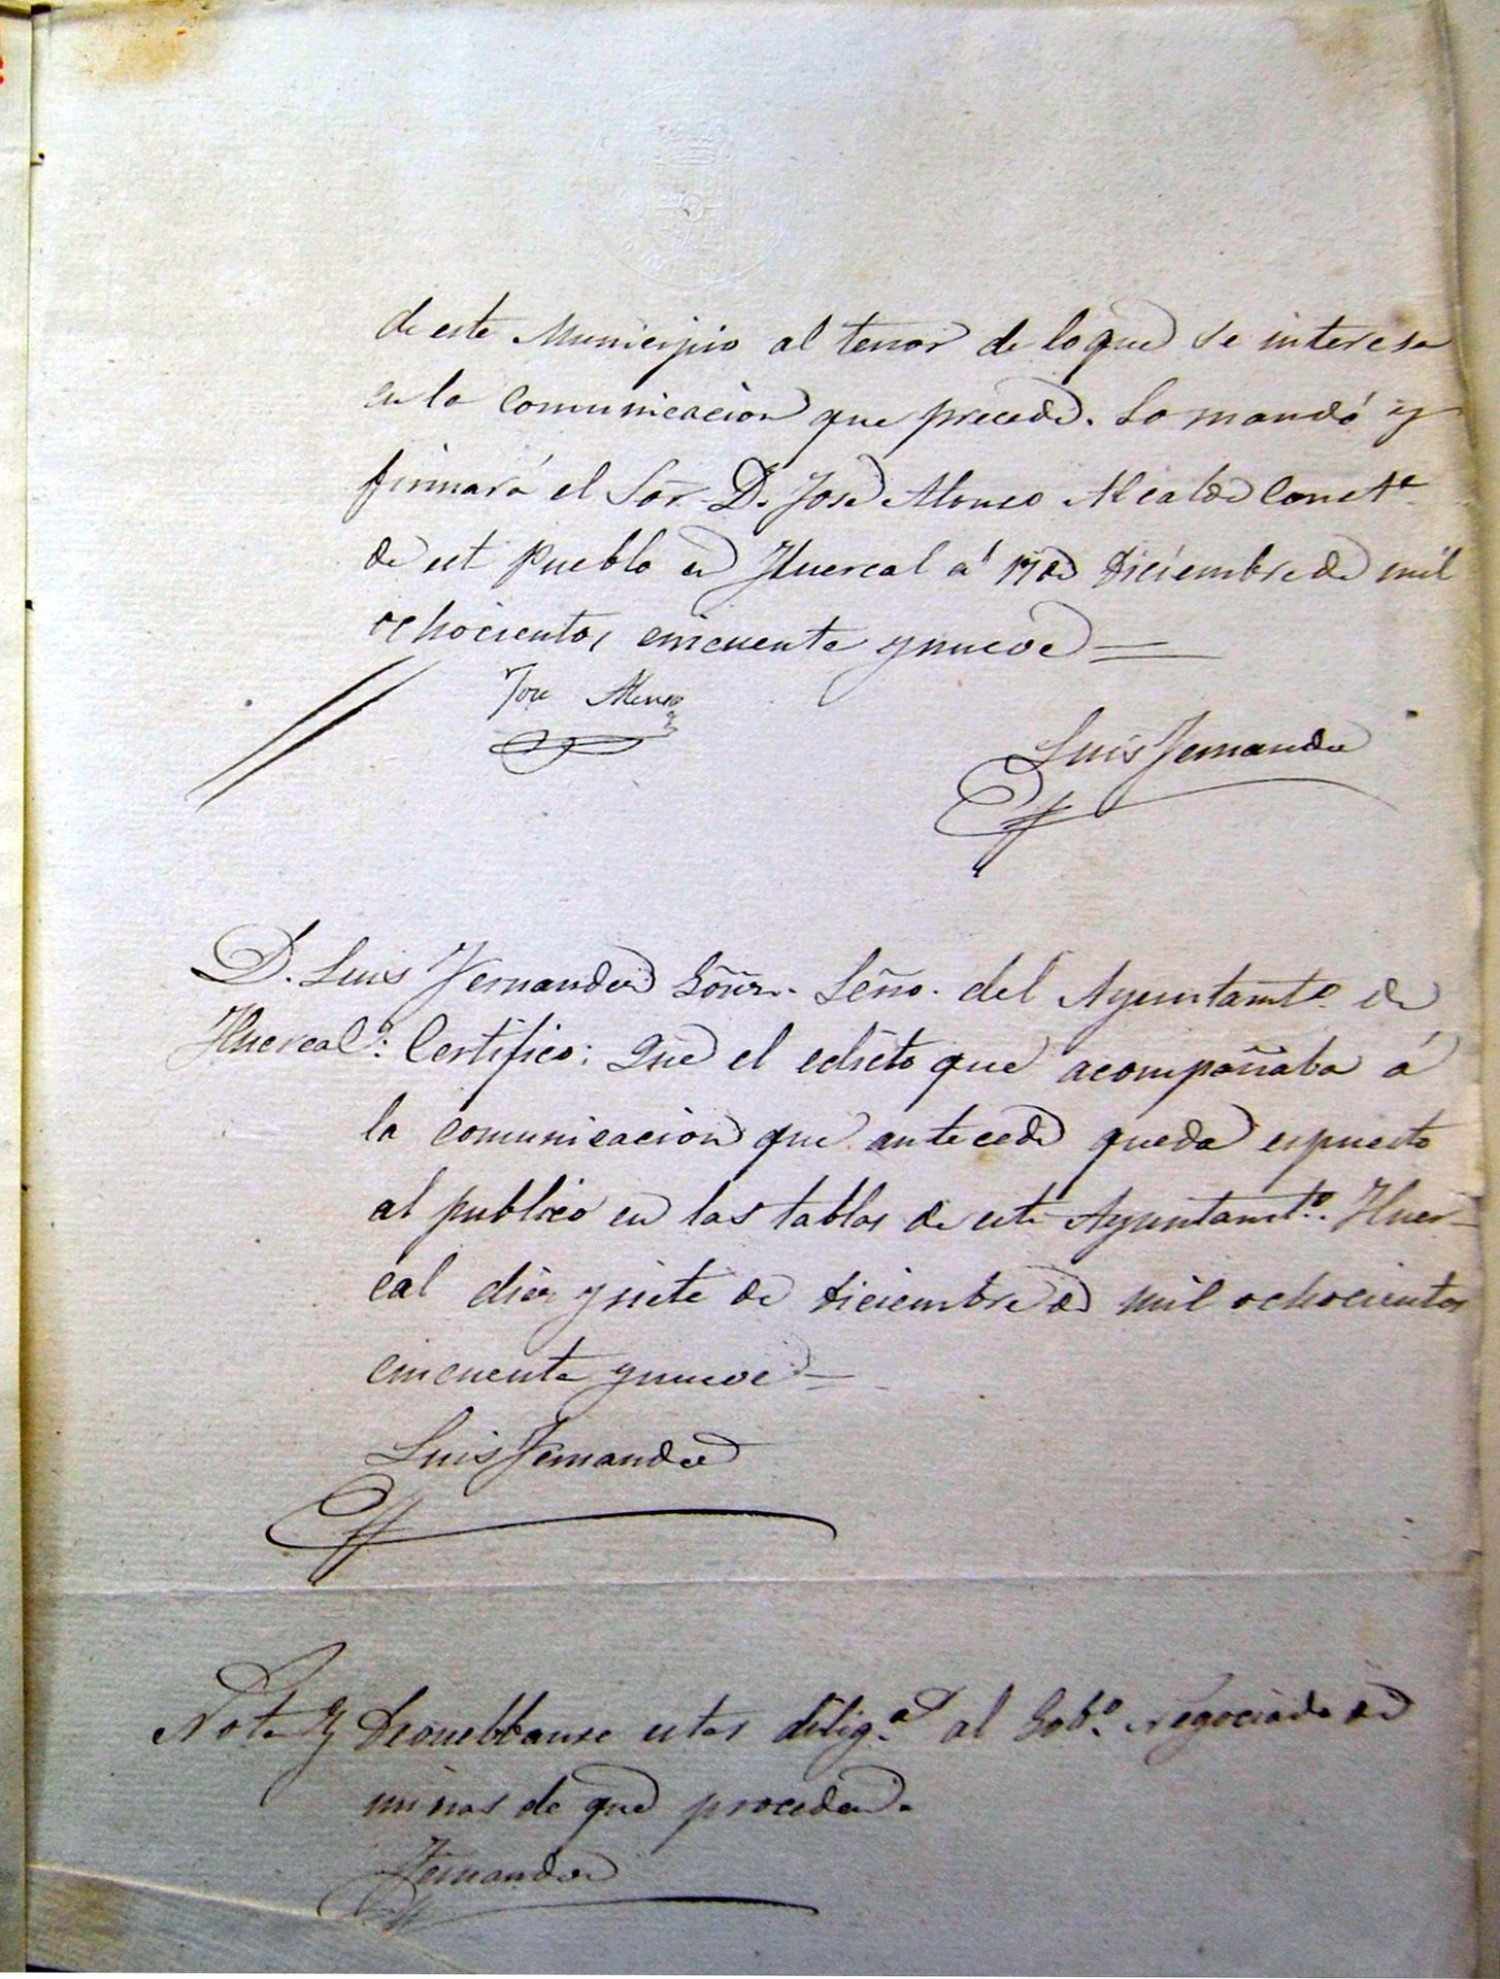 de este Municipio al tenor de lo que se interesa
en la comunicacion que precede. Lo mandó y
firmará el Sor. D. José Alonso Alcalde Const.e
de este Pueblo en Huercal á 17 de Diciembre de mil
ochocientos cincuenta y nueve=
José Alonso
Luis Fernandez
D. Luis Fernandez Srio. del Ayuntamt.o de
Huercal.: Certifico: Que el edicto que acompañaba á
la comunicacion que antecede queda espuesto
al publico en las tablas de este Ayuntamt.o. Huer-
cal diez y siete de Diciembre de mil ochocientos
cincuenta y nueve=
Luis Fernandez
Nota Devuelbanse estas dilig.as al Gob.o Negociado de
minas de que proceden.
Fernandez